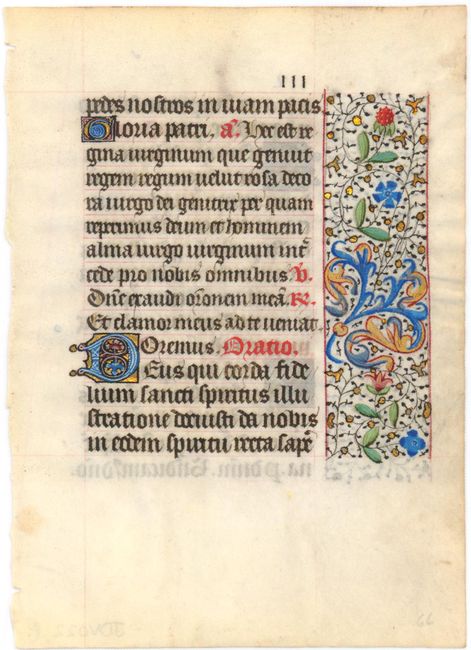 III
pedes nostros in viam pacis
Gloria patri. a. Hec est re
gina virginum que genuit
regem regum velut rosa deco
ra virgo dei genitrix per quam
reperimus deum et hominem
alma virgo virginum int̄
cede pro nobis omnibus V.
Dn̄e exaudi or̄onem meā. R.
Et clamor meus ad te veniat.
Oremus. Oratio.
Deus qui corda fide
lium sancti spiritus illu
stratione docuisti da nobis
in eodem spiritu recta sapē